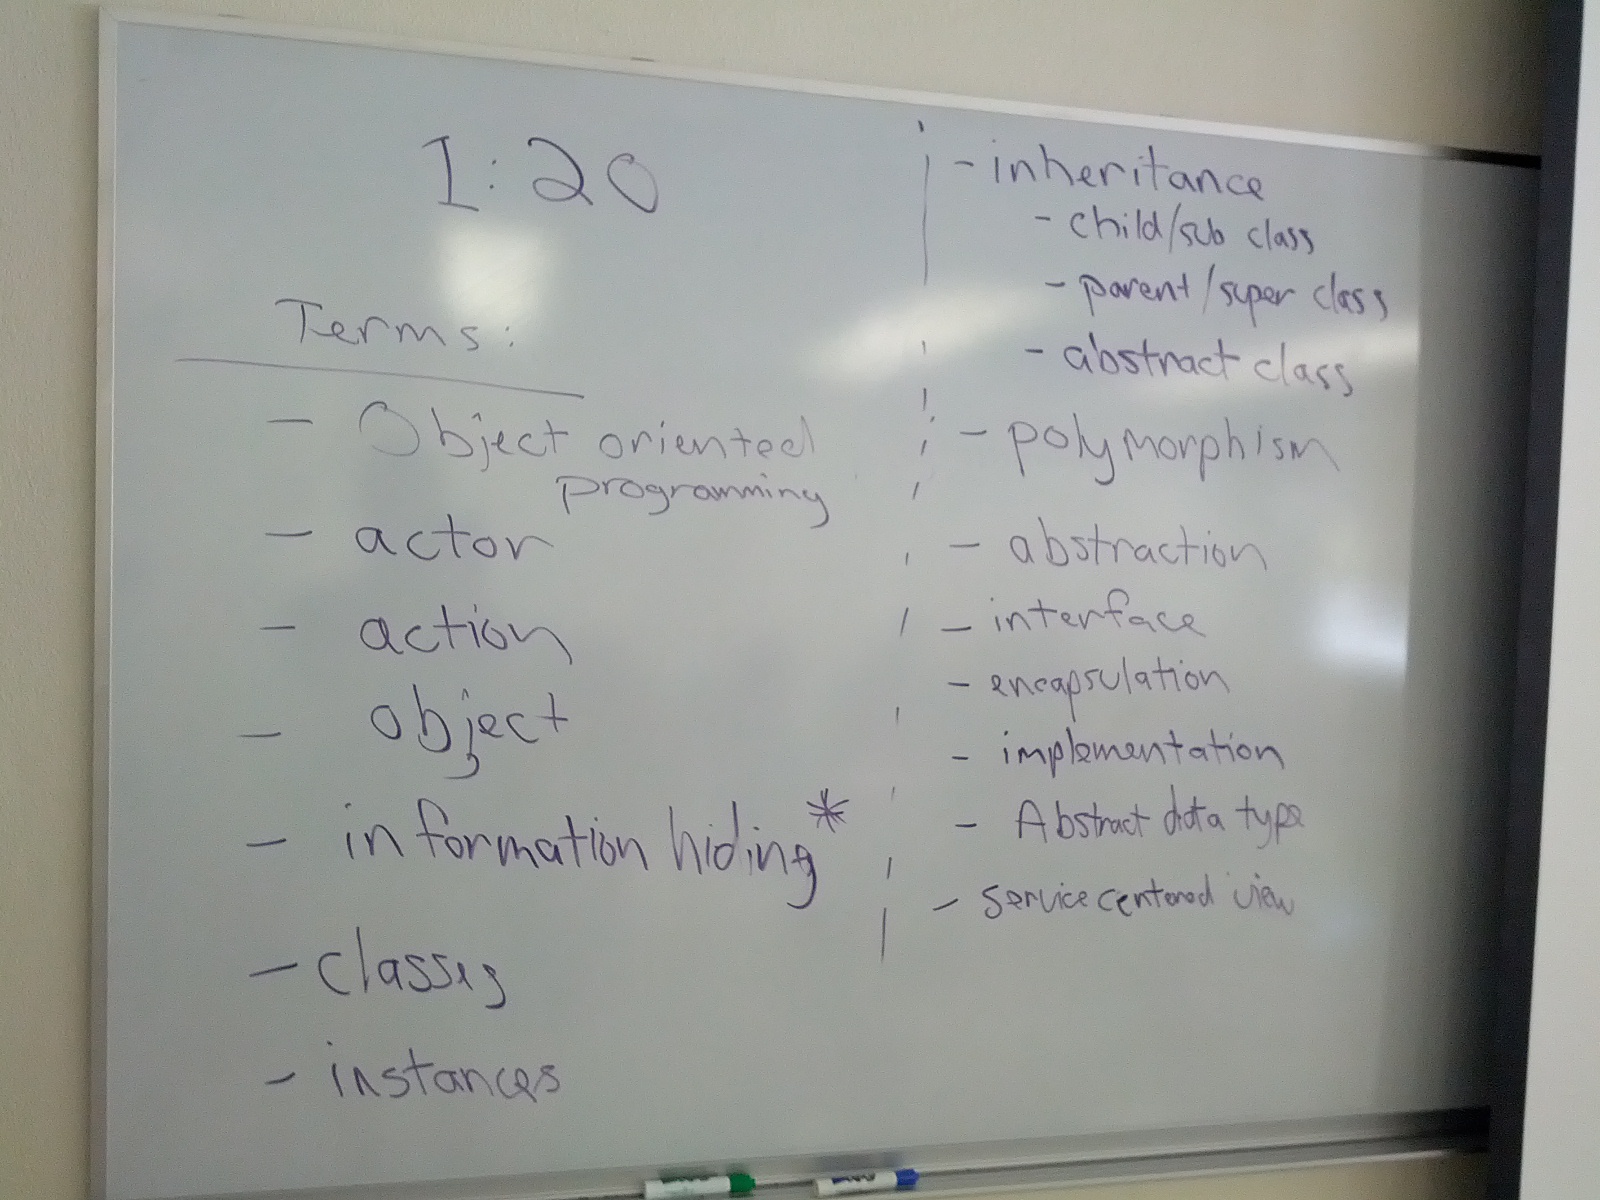 1:20
Terms:
- Object oriented
programming
- actor
- action
- object
- information hiding*
- classes
- instances
- inheritance
- child/sub class
- parent/super class
- abstract class
- polymorphism
- abstraction
- interface
- encapsulation
- implementation
- Abstract data type
- service centered view